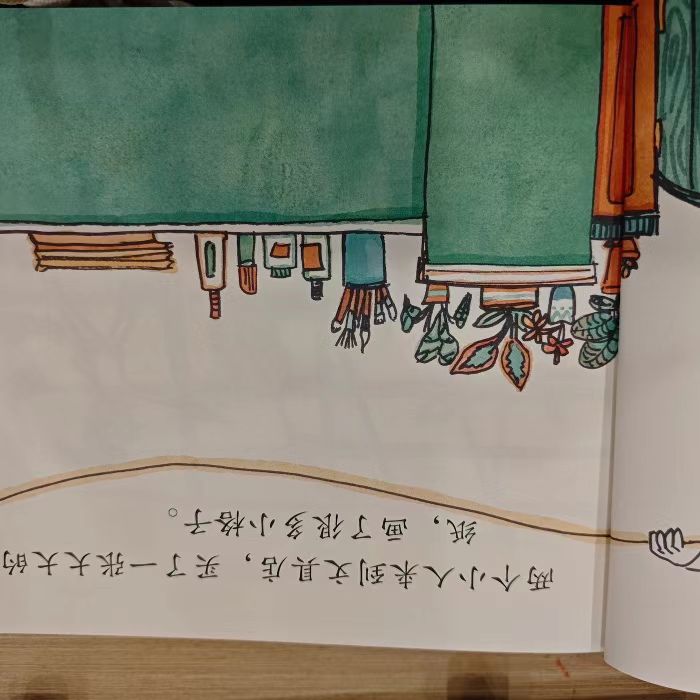 两个小人来到文具店，买了一张大大的
纸，画了很多小格子。